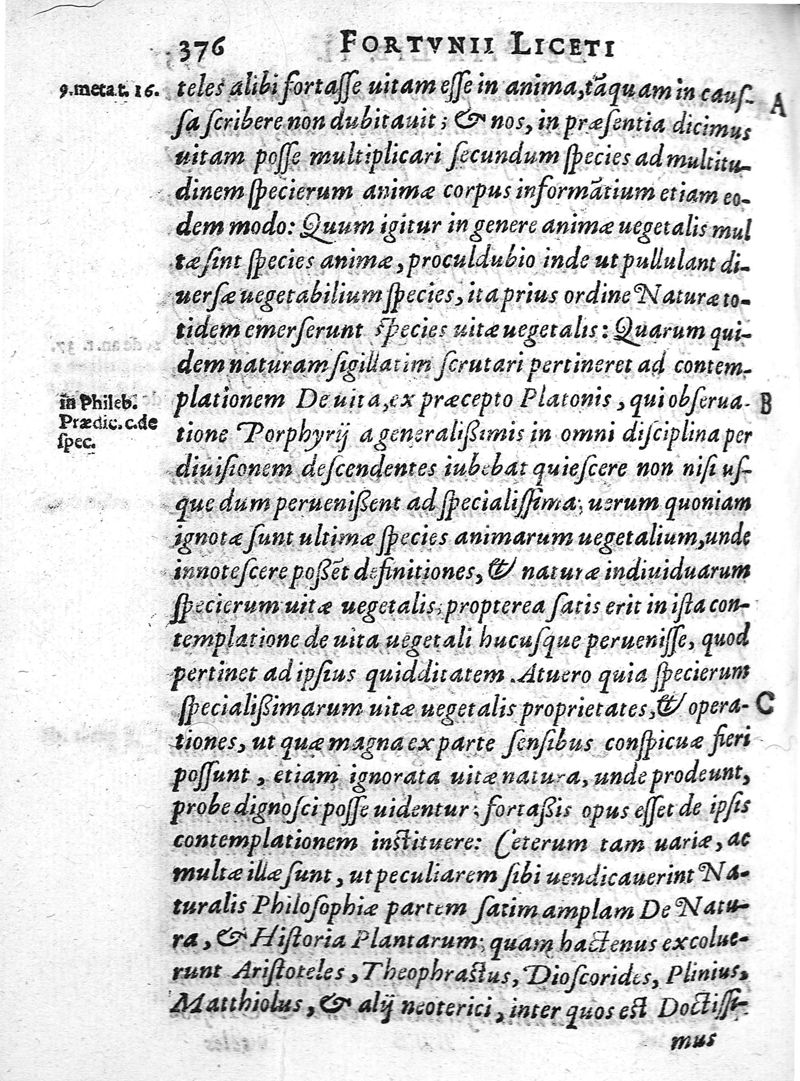 376 FORTVNII LICETI
9. meta t. 16. teles alibi fortasse uitam esse in anima, tãquam in caus- A
sa scribere non dubitauit; & nos, in præsentia dicimus
uitam posse multiplicari secundum species ad multitu-
dinem specierum animæ corpus informãtium etiam eo-
dem modo: Quum igitur in genere animæ uegetalis mul
tæ sint species animæ, proculdubio inde ut pullulant di-
uersæ uegetabilium species, ita prius ordine Naturæ to-
tidem emerserunt species uitæ uegetalis: Quarum qui-
dem naturam sigillatim scrutari pertineret ad contem-
in Phileb. plationem De uita, ex præcepto Platonis, qui obserua- B
Prædic. c. de tione Porphyrij a generalißimis in omni disciplina per
spec. diuisionem descendentes iubebat quiescere non nisi us-
que dum peruenißent ad specialissima; uerum quoniam
ignotæ sunt ultimæ species animarum uegetalium, unde
innotescere poßẽt definitiones, & naturæ indiuiduarum
specierum uitæ uegetalis; propterea satis erit in ista con-
templatione de uita uegetali hucusque peruenisse, quod
pertinet ad ipsius quidditatem. Atuero quia specierum
specialißimarum uitæ uegetalis proprietates, & opera- C
tiones, ut quæ magna ex parte sensibus conspicuæ fieri
possunt, etiam ignorata uitæ natura, unde prodeunt,
probe dignosci posse uidentur; fortaßis opus esset de ipsis
contemplationem instituere: Ceterum tam uariæ, ac
multæ illæ sunt, ut peculiarem sibi uendicauerint Na-
turalis Philosophiæ partem satim amplam De Natu-
ra, & Historia Plantarum; quam hactenus excolue-
runt Aristoteles, Theophrastus, Dioscorides, Plinius,
Matthiolus, & alij neoterici, inter quos est Doctissi-
mus